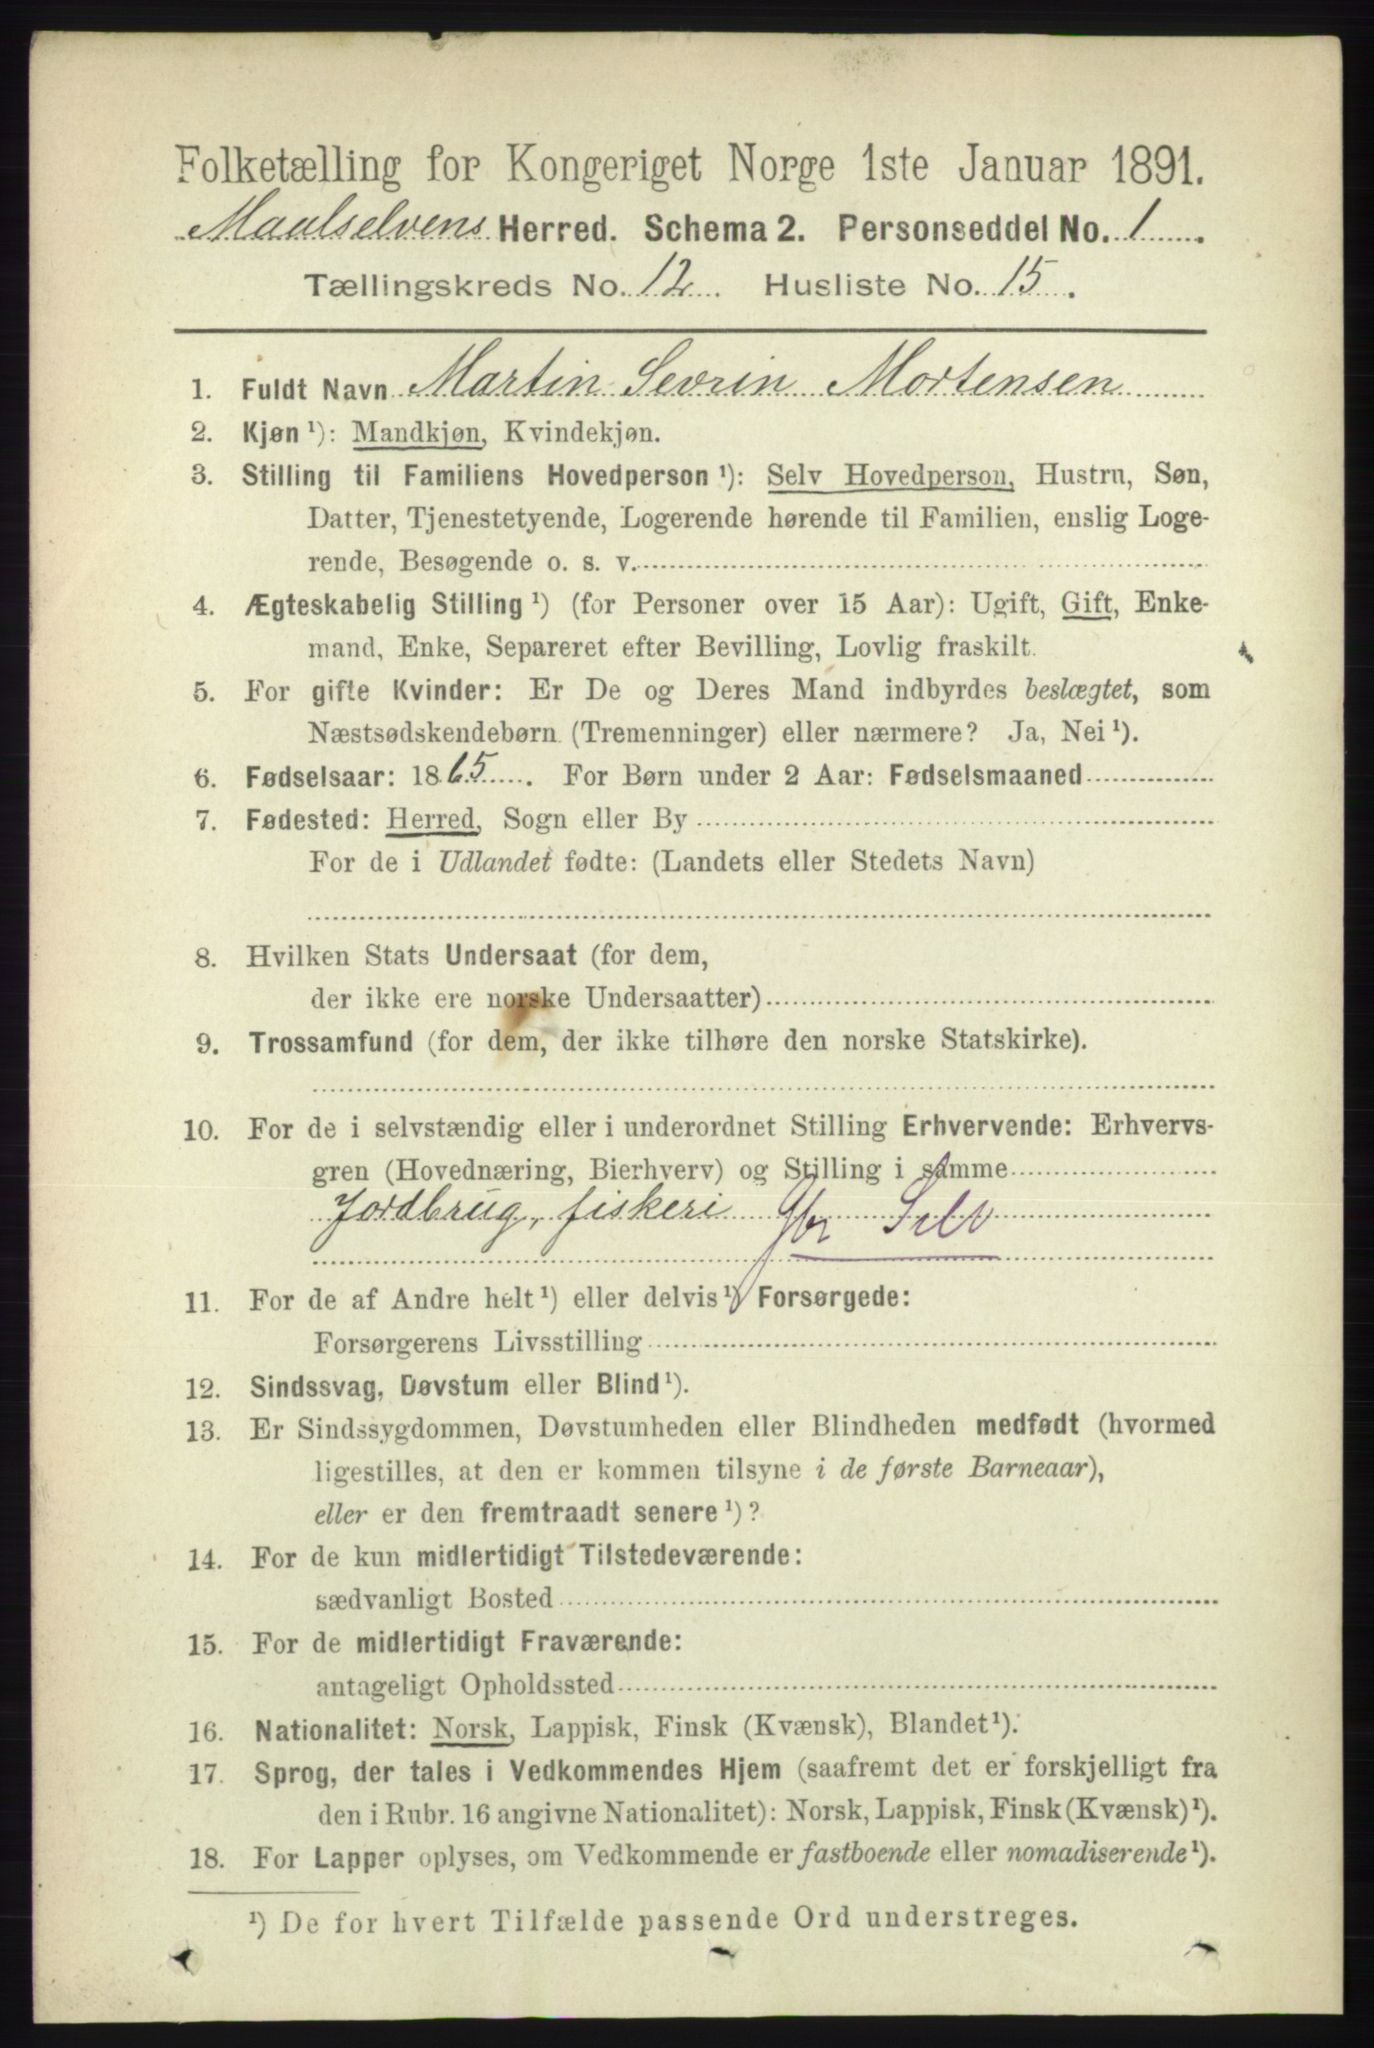 Folketælling for Kongeriget Norge 1ste Januar 1891.
Maalselvens Herred. Schema 2. Personseddel No. 1
Tællingskreds No. 12. Husliste No. 15.
1. Fuldt Navn Martin Sevrin Mortensen
2. Kjøn ¹): Mandkjøn, Kvindekjøn.
3. Stilling til Familiens Hovedperson ¹): Selv Hovedperson, Hustru, Søn,
Datter, Tjenestetyende, Logerende hørende til Familien, enslig Loge-
rende, Besøgende o. s. v.
4. Ægteskabelig Stilling ¹) (for Personer over 15 Aar): Ugift, Gift, Enke-
mand, Enke, Separeret efter Bevilling, Lovlig fraskilt.
5. For gifte Kvinder: Er De og Deres Mand indbyrdes beslægtet, som
Næstsødskendebørn (Tremenninger) eller nærmere? Ja, Nei ¹).
6. Fødselsaar: 1865. For Børn under 2 Aar: Fødselsmaaned
7. Fødested: Herred, Sogn eller By
For de i Udlandet fødte: (Landets eller Stedets Navn)
8. Hvilken Stats Undersaat (for dem,
der ikke ere norske Undersaatter)
9. Trossamfund (for dem, der ikke tilhøre den norske Statskirke).
10. For de i selvstændig eller i underordnet Stilling Erhvervende: Erhvervs-
gren (Hovednæring, Bierhverv) og Stilling i samme
Jordbrug, fiskeri Gbr Selv
11. For de af Andre helt ¹) eller delvis ¹) Forsørgede:
Forsørgerens Livsstilling
12. Sindssvag, Døvstum eller Blind ¹).
13. Er Sindssygdommen, Døvstumheden eller Blindheden medfødt (hvormed
ligestilles, at den er kommen tilsyne i de første Barneaar),
eller er den fremtraadt senere ¹)?
14. For de kun midlertidigt Tilstedeværende:
sædvanligt Bosted
15. For de midlertidigt Fraværende:
antageligt Opholdssted
16. Nationalitet: Norsk, Lappisk, Finsk (Kvænsk), Blandet ¹).
17. Sprog, der tales i Vedkommendes Hjem (saafremt det er forskjelligt fra
den i Rubr. 16 angivne Nationalitet): Norsk, Lappisk, Finsk (Kvænsk) ¹).
18. For Lapper oplyses, om Vedkommende er fastboende eller nomadiserende ¹).
¹) De for hvert Tilfælde passende Ord understreges.